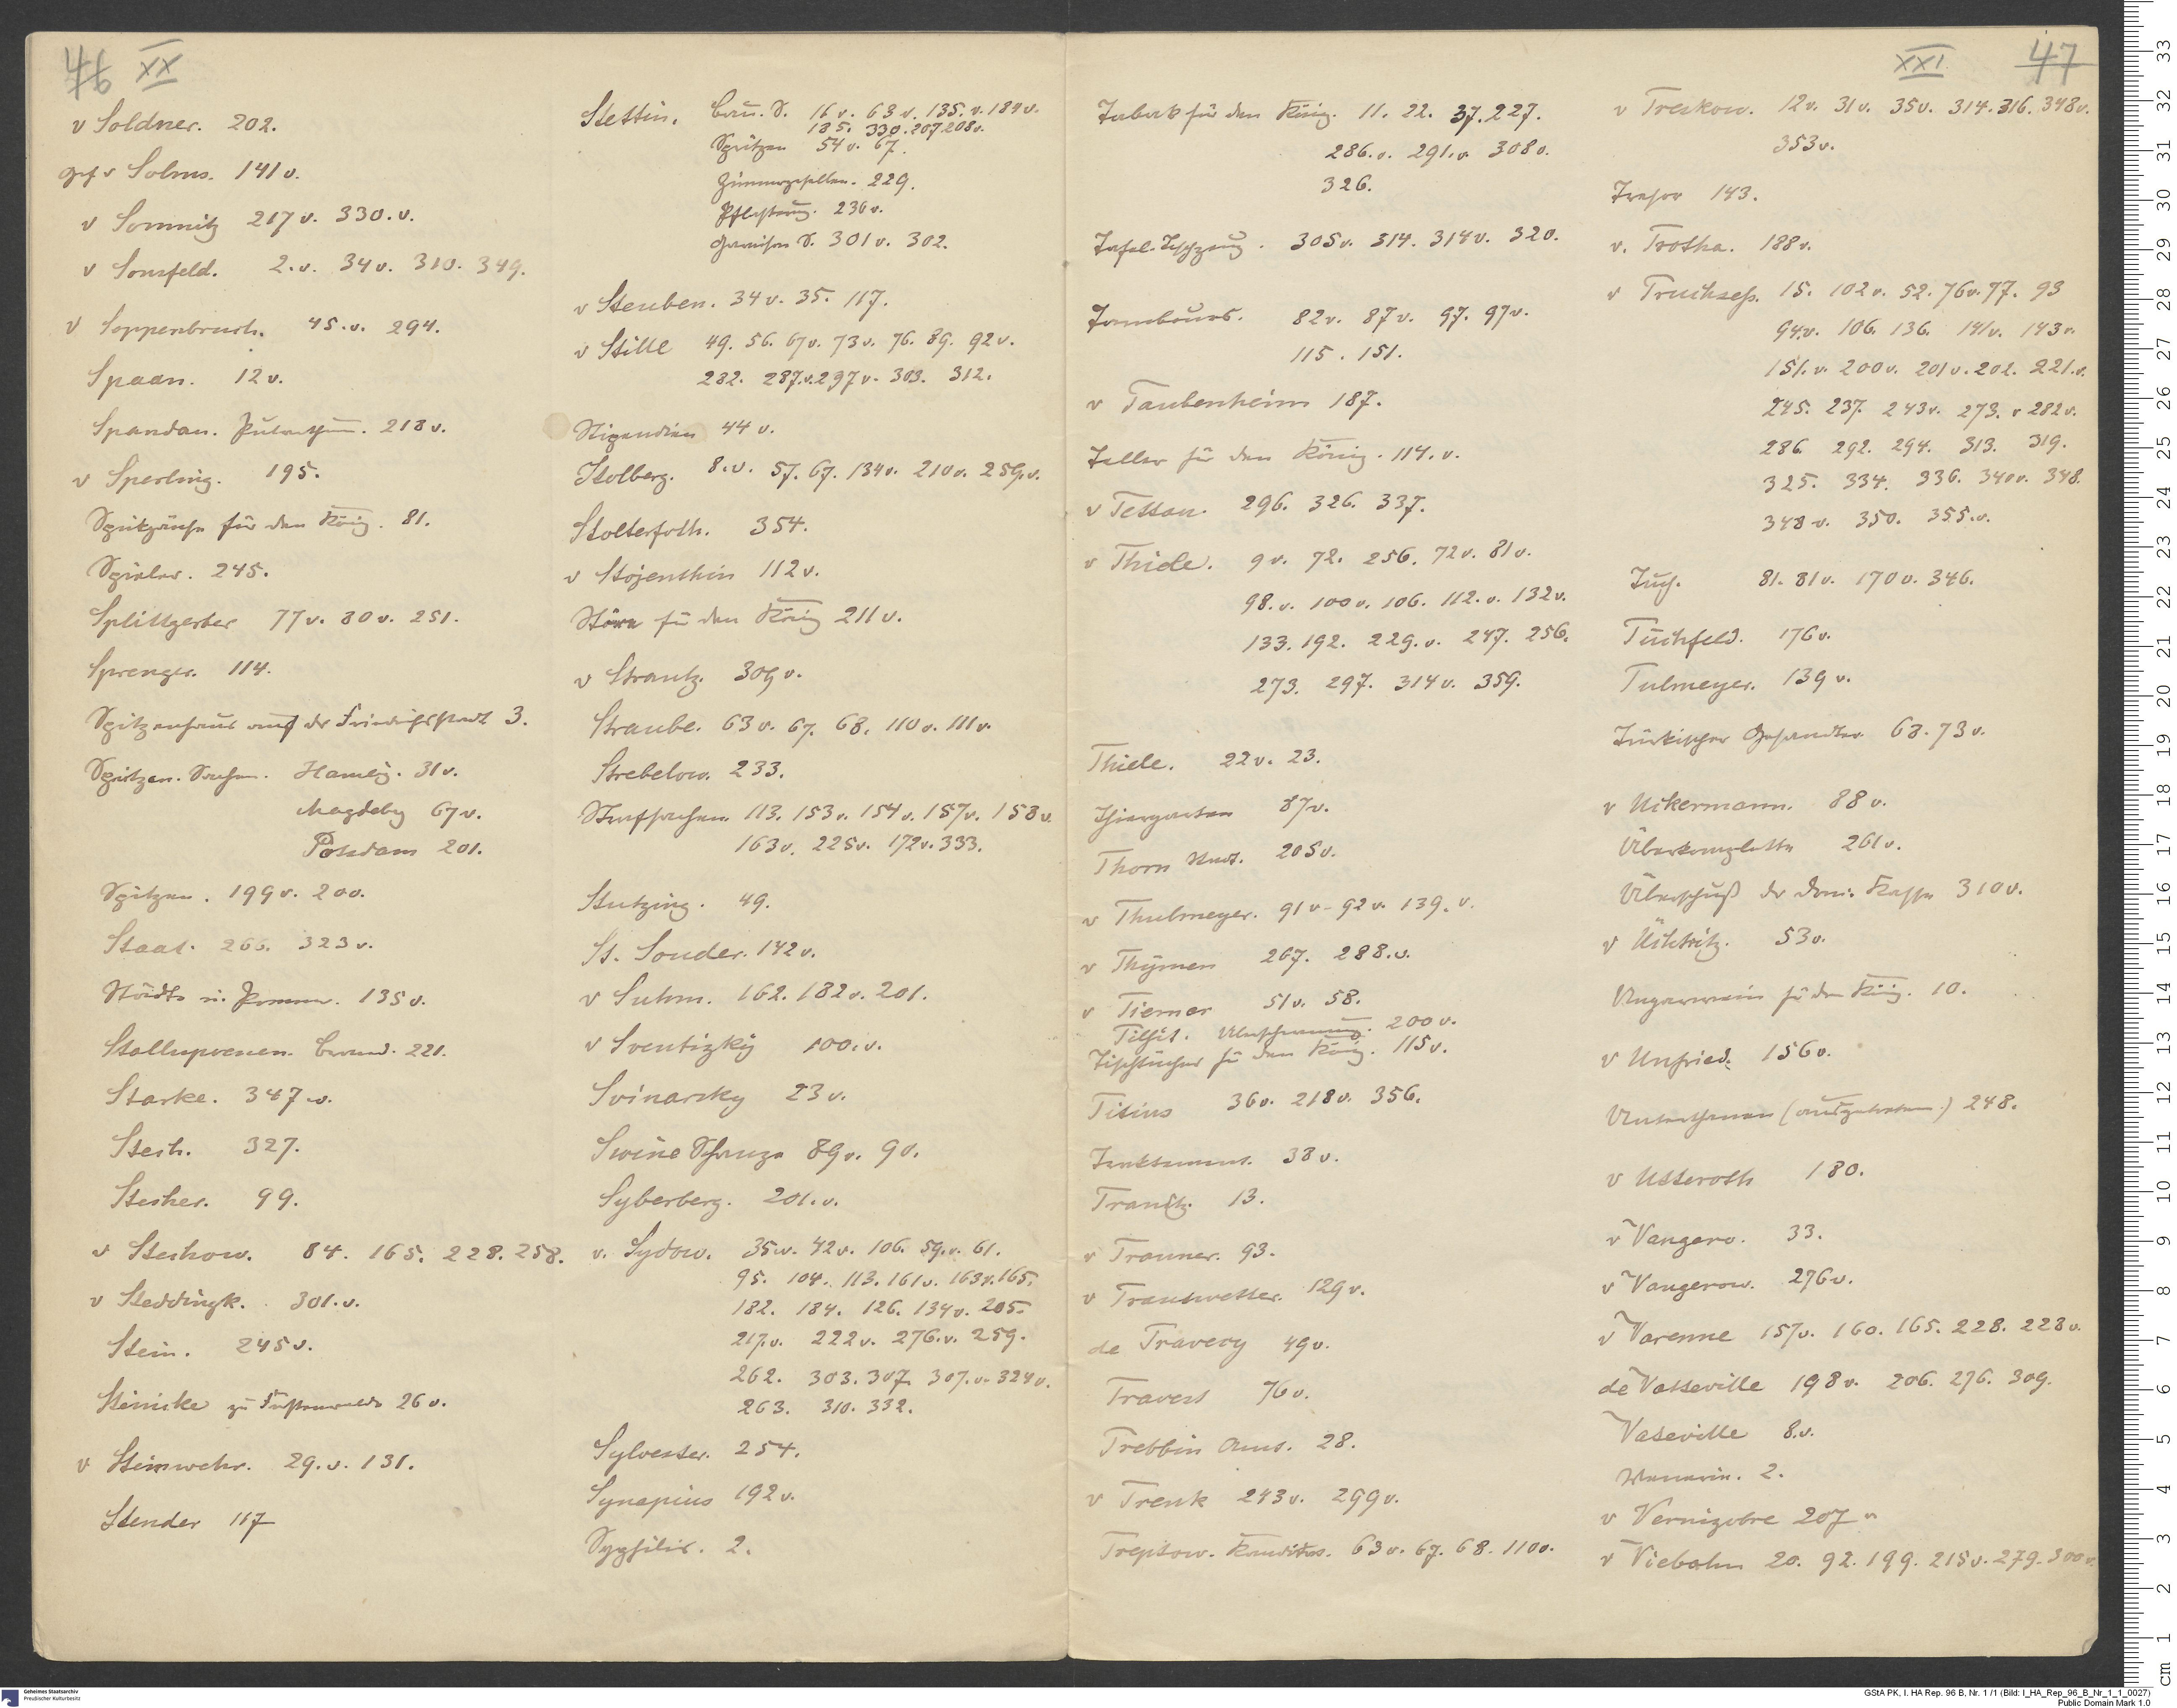 46 XX
v Soldner. 202.
Grf v Solms. 141 v.
v Somnitz 217 v. 330. v.
v Sonsfeld. 2. v. 34 v. 310. 349.
v Soppenbruch. 45. v. 294.
Spaan. 12 v.
Spandau. 218 v.
v Sperling. 195.
für den König. 81.
Spieler. 245.
Splittgerber 77 v. 80 v. 251.
Sprenger. 114.
Spitzenhaus auf der Friedrichsstadt 3.
Spritzen. Sachen. Hameln. 31 v.
Magdebg 67 v.
Potsdam 201.
Spitzen. 199 v. 200.
Staat. 266. 323 v.
Städte in Pommern. 135 v.
Stallupoenen. 221.
Starke. 347 v.
Stech. 327.
Stecher. 99.
v Stechow. 84. 165. 228. 258.
v Steddingk. 301. v.
Stein. 245 v.
Steinicke zu Fürstenwalde 26 v.
v Steinwehr. 29. v. 131.
Stender 117
Stettin. Bau. S. 16 v. 63 v. 135. v. 184 v.
185. 330. 207 208 v.
Spritzen 54 v. 67.
Zimmergesellen. 229.
Pflasterung. 236 v.
Garnison S. 301 v. 302.
v Steuben. 34 v. 35. 117.
v Stille 49. 56. 67 v. 73 v. 76. 89. 92 v.
282. 287. v. 297 v. 303. 312.
Stipendien 44 v.
Stolberg. 8. v. 57. 67. 134 v. 210 v. 259. v.
Stolterfoth. 354.
v Stojenthin 112 v.
Störe für den König 211 v.
v Strantz. 309 v.
Straube. 63 v. 67. 68. 110 v. 111 v.
Strebelow. 233.
Strafsachen 113. 153 v. 154 v. 157 v. 158 v.
163 v. 225 v. 172 v. 333.
Stutzing. 49.
St. Souder. 142 v.
v Suhm. 162. 182 v. 201.
v Sventizky 100. v.
Svinarsky 23 v.
Swine Schanze 89 v. 90.
Syberberg. 201. v.
v. Sydow. 35 v. 42 v. 106. 59. v. 61.
95. 104. 113. 161 v. 163 v. 165.
182. 184. 126. 134 v. 205.
217. v. 222 v. 276. v. 259.
262. 303. 307. 307. v. 324 v.
263. 310. 332.
Sylvester. 254.
Synapius 192 v.
Syphilis. 2.
XXI. 47
Taback für den König. 11. 22. 37. 227.
286. v. 291. v. 308 v.
326.
Tafel-Tischzeug. 305 v. 314. 314 v. 320.
Tambours. 82 v. 87 v. 97. 97 v.
115. 151.
v Taubenheim 187.
Teller für den König. 114. v.
v Tettau. 296. 326. 337.
v Thiele. 9 v. 72. 256. 72 v. 81 v.
98. v. 100 v. 106. 112. v. 132 v.
133. 192. 229. v. 247. 256.
273. 297. 314 v. 359.
Thiele. 22 v. 23.
Thiergarten 87 v.
Thorn Stadt. 205 v.
v Thulmeyer. 91 v - 92 v. 139. v.
v Thümen 267. 288. v.
v Tiemar 51 v. 58.
Tilsit. Überschwemmung. 200 v.
Tischtücher für den König. 115 v.
Titius 36 v. 218 v. 356.
38 v.
Tranitz. 13.
v Trauner. 93.
v Trautwetter. 129 v.
de Travery 49 v.
Travers 76 v.
Trebbin Amt. 28.
v Trenk 243 v. 299 v.
Treptow. 63 v. 67. 68. 110 v.
v Treskow. 12 v. 31 v. 35 v. 314. 316. 348 v.
353 v.
Tresor 143.
v. Trotha. 188 v.
v Truchseß. 15. 102 v. 52. 76 v. 77. 93
94. v. 106. 136. 141 v. 143 v.
151. v. 200 v. 201 v. 202. 221. v.
245. 237. 243 v. 273. v 282 v.
286. 292. 294. 313. 319.
325. 334. 336. 340 v. 348.
348 v. 350. 355. v.
Tuch. 81. 81 v. 170 v. 346.
Tuchfeld. 176 v.
Tulmeyer. 139 v.
Türkischer Gesandter 68. 73 v.
v Uckermann. 88 v.
Überkomplette 261 v.
Überschuß der Dom. Kasse 310 v.
v Üchtritz. 53 v.
Ungarwein für den König. 10.
v Unfried. 156 v.
Unterthanen (ausgetretene) 248.
v Usteroth 180.
v Vangero. 33.
v Vangerow. 276 v.
v Varenne 157 v. 160. 165. 228. 228 v.
de Vatteville 198 v. 206. 276. 309.
Vaseville 8. v.
2.
v Vernizobre 207 v
v Viebahn 20. 92. 199. 215 v. 279. 300 v.
33
32
31
30
29
28
27
26
25
24
23
22
21
20
19
18
17
16
15
14
13
12
11
10
9
8
7
6
5
4
3
2
1
cm
Geheimes Staatsarchiv
Preußischer Kulturbesitz
GStA PK, I. HA Rep. 96 B, Nr. 1 /1 (Bild: I_HA_Rep_96_B_Nr_1_1_0027)
Public Domain Mark 1.0